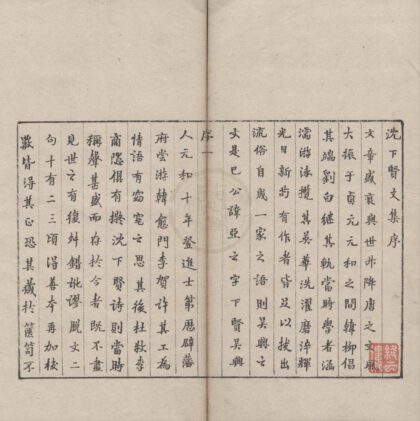 沈下賢文集序
文章盛衰與世升降唐之文風
大振于貞元元和之間韓柳倡
其端劉白繼其軌當時學者涵
濡游泳攬其英華洗濯磨淬輝
光日新苟有作者皆足以拔出
流俗自成一家之語則吳興之
文是已公諱亞之字下賢吳興
序 一
人元和十年登進士第歷辟藩
府嘗游韓愈門李賀許其工為
情語有窈窕之思其後杜牧李
商隱俱有擬沈下賢詩則當時
稱聲甚盛而存於今者既不盡
見世之有復舛錯訛謬脫文二
句十有二三頃得善本再加校
數皆得其正恐其藏於篋笥不